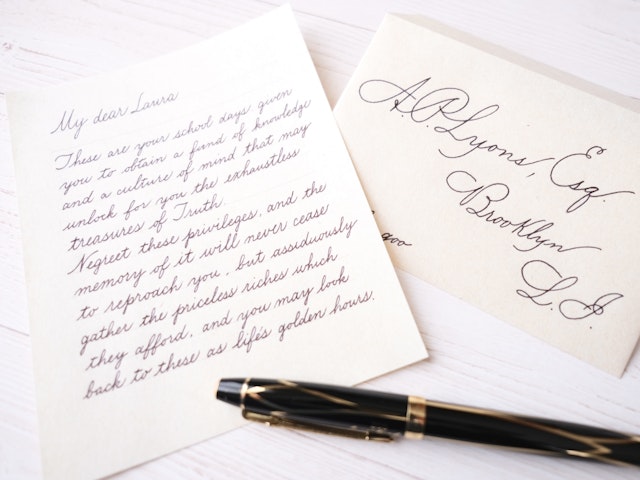 My dear Laura
These are your school days given
you to obtain a fund of knowledge
and a culture of mind that may
unlock for you the exhaustless
treasures of Truth.
Negreet these privileges, and the
memory of it will never cease
to reproach you, but assiduously
gather the priceless riches which
they afford, and you may look
back to these as life's golden hours.
A.P. Lyons, Esq.
Brooklyn
L.I.